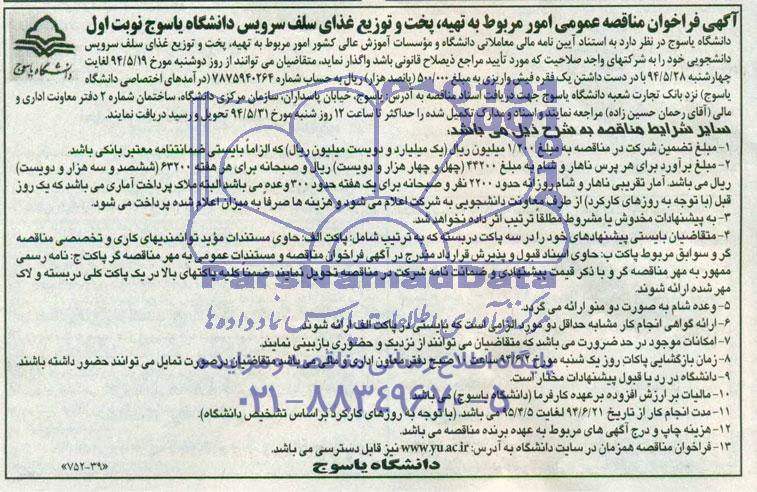 آگهی فراخوان مناقصه عمومی امور مربوط به تهیه، پخت و توزیع غذای سلف سرویس دانشگاه یاسوج نوبت اول
دانشگاه یاسوج
دانشگاه یاسوج در نظر دارد به استناد آیین نامه مالی معاملاتی دانشگاه و مؤسسات آموزش عالی کشور امور مربوط به تهیه، پخت و توزیع غذای سلف سرویس
دانشجویی خود را به شرکتهای واجد صلاحیت که مورد تأیید مراجع ذیصلاح قانونی باشد واگذار نماید، متقاضیان می توانند از روز دوشنبه مورخ ۹۴/۵/۱۹ لغایت
چهارشنبه ۹۴/۵/۲۸ با در دست داشتن یک فقره فیش واریزی به مبلغ ۵۰۰/۰۰۰ (پانصد هزار) ریال به حساب شماره ۷۸۷۵۹۴۰۲۶۴ (درآمدهای اختصاصی دانشگاه
یاسوج) نزد بانک تجارت شعبه دانشگاه یاسوج جهت دریافت اسناد مناقصه به آدرس: یاسوج، خیابان پاسداران، سازمان مرکزی دانشگاه، ساختمان شماره ۲ دفتر معاونت اداری و
مالی (آقای رحمان حسین زاده) مراجعه نمایند و اسناد و مدارک تکمیل شده را حداکثر تا ساعت ۱۲ روز شنبه مورخ ۹۴/۵/۳۱ تحویل و رسید دریافت نمایند.
سایر شرایط مناقصه به شرح ذیل می باشد:
۱- مبلغ تضمین شرکت در مناقصه به مبلغ ۱/۲۰۰ میلیون ریال (یک میلیارد و دویست میلیون ریال) که الزاماً بایستی ضمانتنامه معتبر بانکی باشد.
۲- مبلغ برآورد برای هر پرس ناهار و شام به مبلغ ۴۴۲۰۰ (چهل و چهار هزار و دویست) ریال و صبحانه برای هر هفته ۶۳۲۰۰ (ششصد و سه هزار و دویست)
ریال می باشد. آمار تقریبی ناهار و شام روزانه حدود ۲۲۰۰ نفر و صبحانه برای یک هفته حدود ۳۰۰ وعده می باشد البته ملاک پرداخت آماری می باشد که یک روز
قبل (با توجه به روزهای کارکرد) از طرف معاونت دانشجویی به شرکت اعلام می شود و هزینه ها صرفا به میزان اعلام شده پرداخت می شود.
۳- به پیشنهادات مخدوش یا مشروط مطلقا ترتیب اثر داده نخواهد شد.
۴- متقاضیان بایستی پیشنهادهای خود را در سه پاکت دربسته که به ترتیب شامل: پاکت الف: حاوی مستندات مؤید توانمندیهای کاری و تخصصی مناقصه
گر و سوابق مربوط پاکت ب: حاوی اسناد قبول و پذیرش قرارداد مندرج در آگهی فراخوان مناقصه و مستندات عمومی به مهر مناقصه گر پاکت ج: نامه رسمی
ممهور به مهر مناقصه گر و با ذکر قیمت پیشنهادی و ضمانت نامه شرکت در مناقصه تحویل نمایند. ضمنا کلیه پاکتهای بالا در یک پاکت کلی دربسته و لاک
مهر شده ارائه شوند.
۵- وعده شام به صورت دو منو ارائه می گردد.
۶- ارائه گواهی انجام کار مشابه حداقل دو مورد الزامی است که بایستی در پاکت الف ارائه شوند.
۷- امکانات موجود در حد ضرورت می باشد که متقاضیان می توانند از نزدیک و حضوری بازبینی نمایند.
۸- زمان بازگشایی پاکات روز یک شنبه مورخ ساعت صبح دفتر معاون اداری و مالی می باشد متقاضیان در صورت تمایل می توانند حضور داشته باشند.
۹- دانشگاه در رد یا قبول پیشنهادات مختار است.
۱۰- مالیات بر ارزش افزوده بر عهده کارفرما (دانشگاه یاسوج) می باشد.
۱۱- مدت انجام کار از تاریخ ۹۴/۶/۲۱ لغایت ۹۵/۴/۵ می باشد. (با توجه به روزهای کارکرد بر اساس تشخیص دانشگاه).
۱۲- هزینه چاپ و درج آگهی های مربوط به عهده برنده مناقصه می باشد.
۱۳- فراخوان مناقصه همزمان در سایت دانشگاه به آدرس: www.yu.ac.ir نیز قابل دسترسی می باشد.
دانشگاه یاسوج
«۷۵۲-۳۹»
ParsNamadData
مرکز فرآوری اطلاعات پارس نماد داده ها
پایگاه اطلاع رسانی مناقصه و مزایده
۰۲۱-۸۸۳۴۹۶۷۰-۵